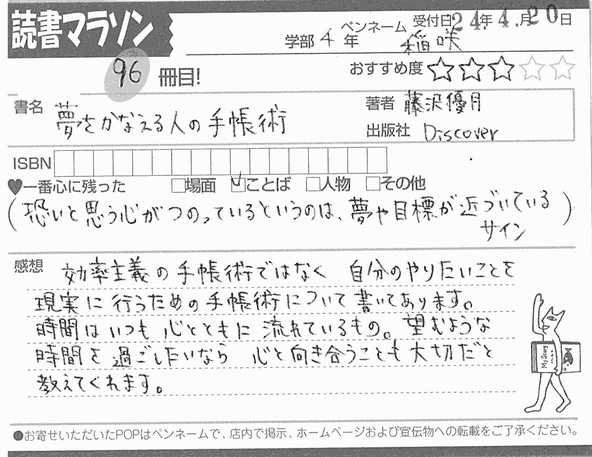 読書マラソン
ペンネーム 受付日 24年4月20日
学部 4 年 稲咲
96 冊目!
おすすめ度 ☆☆☆☆☆
書名 夢をかなえる人の手帳術
著者 藤沢優月
出版社 Discover
ISBN
♥一番心に残った □場面 ☑ことば □人物 □その他
(恐いと思う心がつのっているというのは、夢や目標が近づいている
サイン)
感想 効率主義の手帳術ではなく 自分のやりたいことを
現実に行うための手帳術について書いてあります。
時間はいつも心とともに流れているもの。望むような
時間を過ごしたいなら 心と向き合うことも大切だと
教えてくれます。
●お寄せいただいたPOPはペンネームで、店内で掲示、ホームページおよび宣伝物への転載をご了承ください。